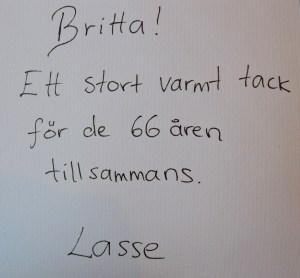 Britta!
Ett stort varmt tack
för de 66 åren
tillsammans.
Lasse